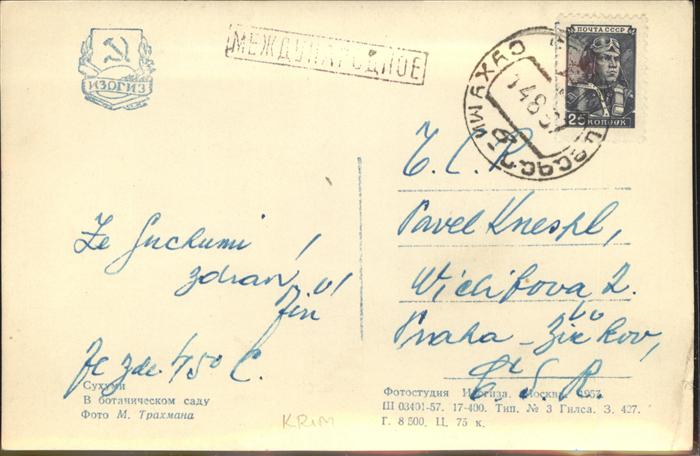 ИЗОГИЗ
МЕЖДУНАРОДНОЕ
ПОЧТА СССР
25 КОПЕЕК
СУХУМИ
Č.S.R.
Pavel Knespl,
2.
Praha - Žižkov,
Č.S.R.
Ze Suchumi
zdraví
Jiří
Je zde 45° C.
Сухуми
В ботаническом саду
Фото М. Трахмана
KRIM
Фотостудия Изогиза. Москва, 1957
Ш 03401-57. 17-400. Тип. № 3 Гилса. З. 427.
Г. 8 500. Ц. 75 к.